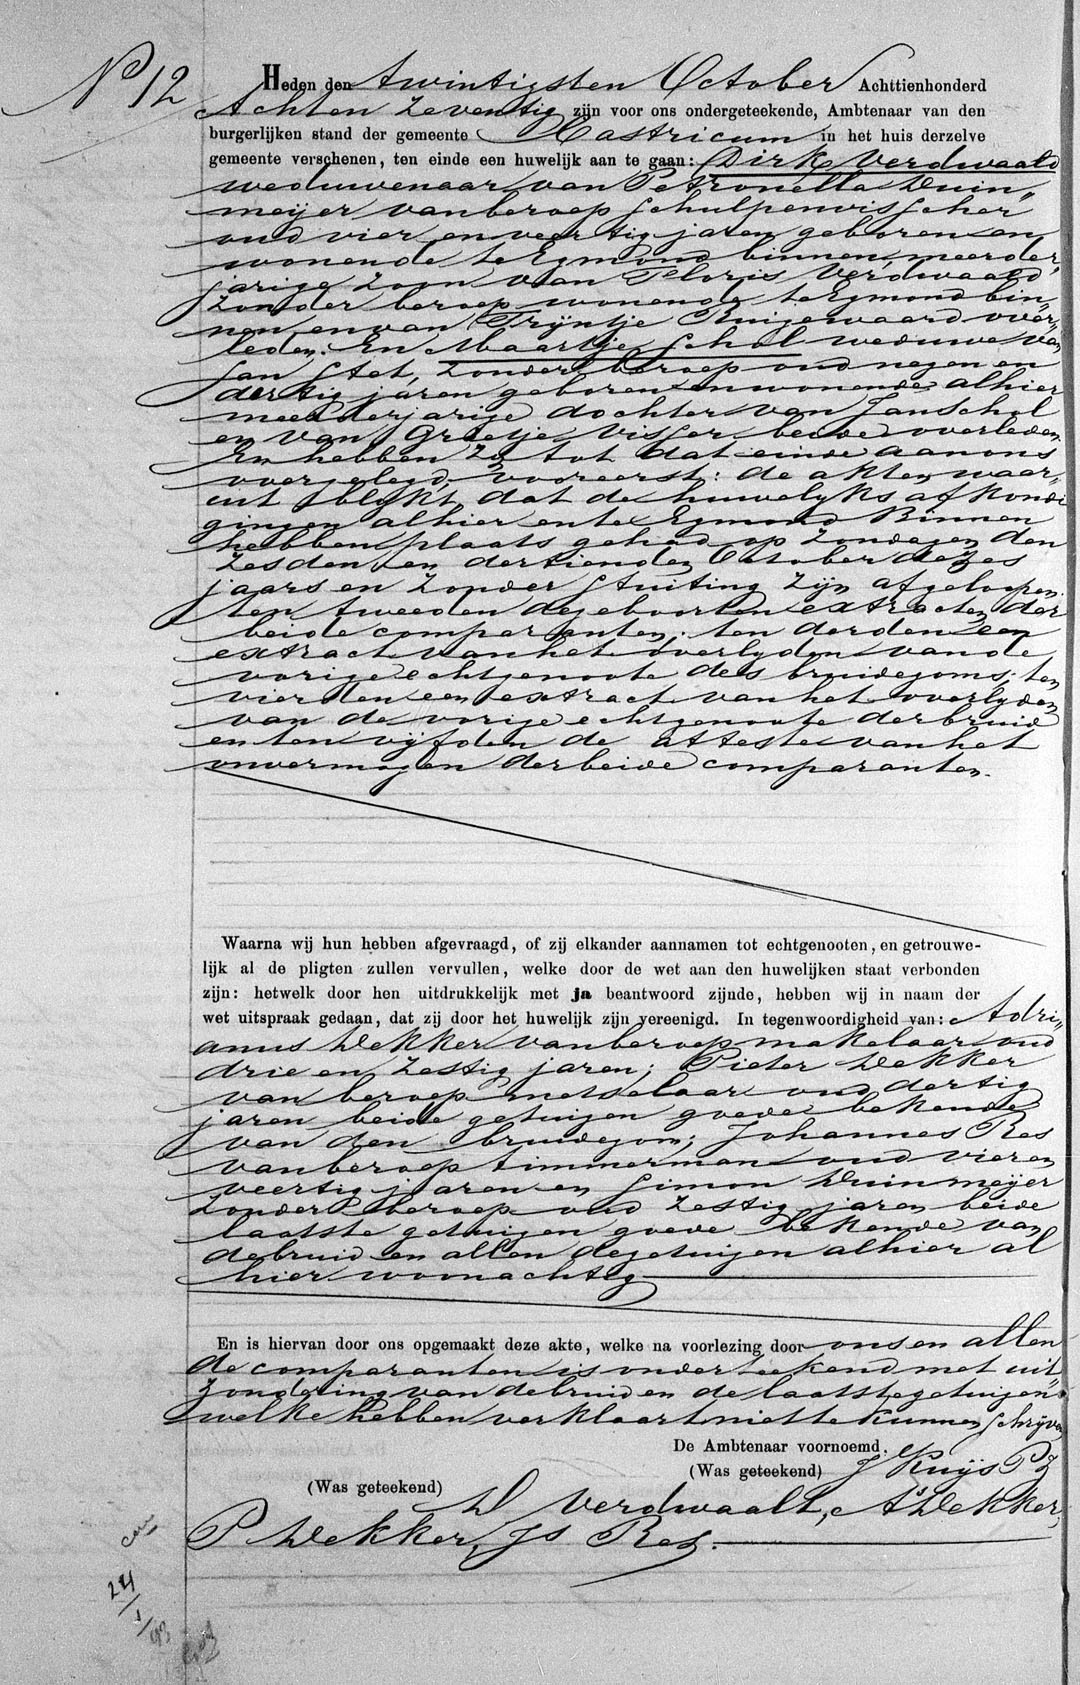 No 12
Heden den twintigsten October Achttienhonderd
Achten Zeventig zijn voor ons ondergeteekende, Ambtenaar van den
burgerlijken stand der gemeente Castricum in het huis derzelve
gemeente verschenen, ten einde een huwelijk aan te gaan: Dirk Verdwaald
weduwenaar van Petronella Duin"
meijer van beroep schulpenvisscher
oud vier en veertig jaren geboren en
wonende te Egmond binnen, meerder"
jarige zoon van Floris Verdwaald
zonder beroep wonende te Egmond bin"
nen en van Trijntje Ruijgewaard over"
leden. En Maartje Schol weduwe van
Jan Stet, zonder beroep oud negen en
dertig jaren geboren en wonende alhier
meerderjarige dochter van Jan Schol
en van Grietje Visser beide overleden.
En hebben zij tot dat einde aan ons
overgelegd, vooreerst: de akten waar"
uit blijkt dat de huwelijks afkondi
gingen alhier en te Egmond Binnen
hebben plaats gehad op Zondagen den
zesden en dertienden October dezes
jaars en zonder stuiting zijn afgeloopen.
ten tweeden de geboorten extracten der
beide comparanten; ten derden een
extract van het overlyden van de
vorige echtgenoote des bruidegoms; ten
vierden een extract van het overlyden
van de vorige echtgenoote der bruid
en ten vijfden de atteste van het
onvermogen der beide comparanten.
Waarna wij hun hebben afgevraagd, of zij elkander aannamen tot echtgenooten, en getrouwe-
lijk al de pligten zullen vervullen, welke door de wet aan den huwelijken staat verbonden
zijn: hetwelk door hen uitdrukkelijk met ja beantwoord zijnde, hebben wij in naam der
wet uitspraak gedaan, dat zij door het huwelijk zijn vereenigd. In tegenwoordigheid van: Adri"
anus Dekker van beroep makelaar oud
drie en zestig jaren; Pieter Dekker
van beroep metselaar oud dertig
jaren beide getuigen goede bekende
van den bruidegom; Johannes Res
van beroep timmerman oud vier en
veertig jaren en Simon Duinmeijer
zonder beroep oud zestig jaren beide
laatste getuigen goede bekende van
de bruid en allen de getuigen alhier al
hier woonachtig
En is hiervan door ons opgemaakt deze akte, welke na voorlezing door ons en allen
de comparanten is onderteekend met uit"
zondering van de bruid en de laatste getuigen
welke hebben verklaart niet te kunnen schrijven
De Ambtenaar voornoemd.
(Was geteekend) J Kuijs Pz
(Was geteekend)
D Verdwaalt, As Dekker,
P Dekker, Js Res.
24/1/93